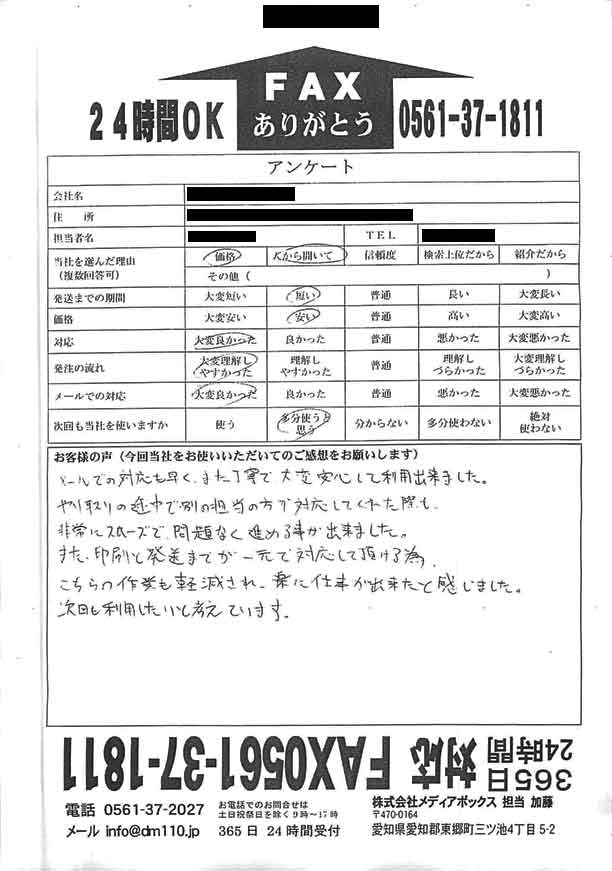 FAX
ありがとう
24時間OK
0561-37-1811
アンケート
会社名
住 所
担当者名 TEL
当社を選んだ理由(複数回答可) 価格 Kから聞いて 信頼度 検索上位だから 紹介だから
その他( )
発送までの期間 大変短い 短い 普通 長い 大変長い
価格 大変安い 安い 普通 高い 大変高い
対応 大変良かった 良かった 普通 悪かった 大変悪かった
発注の流れ 大変理解しやすかった 理解しやすかった 普通 理解しづらかった 大変理解しづらかった
メールでの対応 大変良かった 良かった 普通 悪かった 大変悪かった
次回も当社を使いますか 使う 多分使うと思う 分からない 多分使わない 絶対使わない
お客様の声(今回当社をお使いいただいてのご感想をお願いします)
メールでの対応も早く、また丁寧で、大変安心して利用出来ました。
やり取りの途中で別の担当の方が対応してくれた際も、
非常にスムーズで、問題なく進める事が出来ました。
また、印刷と発送までが一元で対応して頂ける為、
こちらの作業も軽減され、楽に仕事が出来たと感じました。
次回も利用したいと考えています。
365日
24時間
対応 FAX0561-37-1811
電話 0561-37-2027
お電話でのお問合せは
土日祝祭日を除く9時〜17時
メール info@dm110.jp
365日 24時間受付
株式会社メディアボックス 担当 加藤
〒470-0164
愛知県愛知郡東郷町三ツ池4丁目5-2